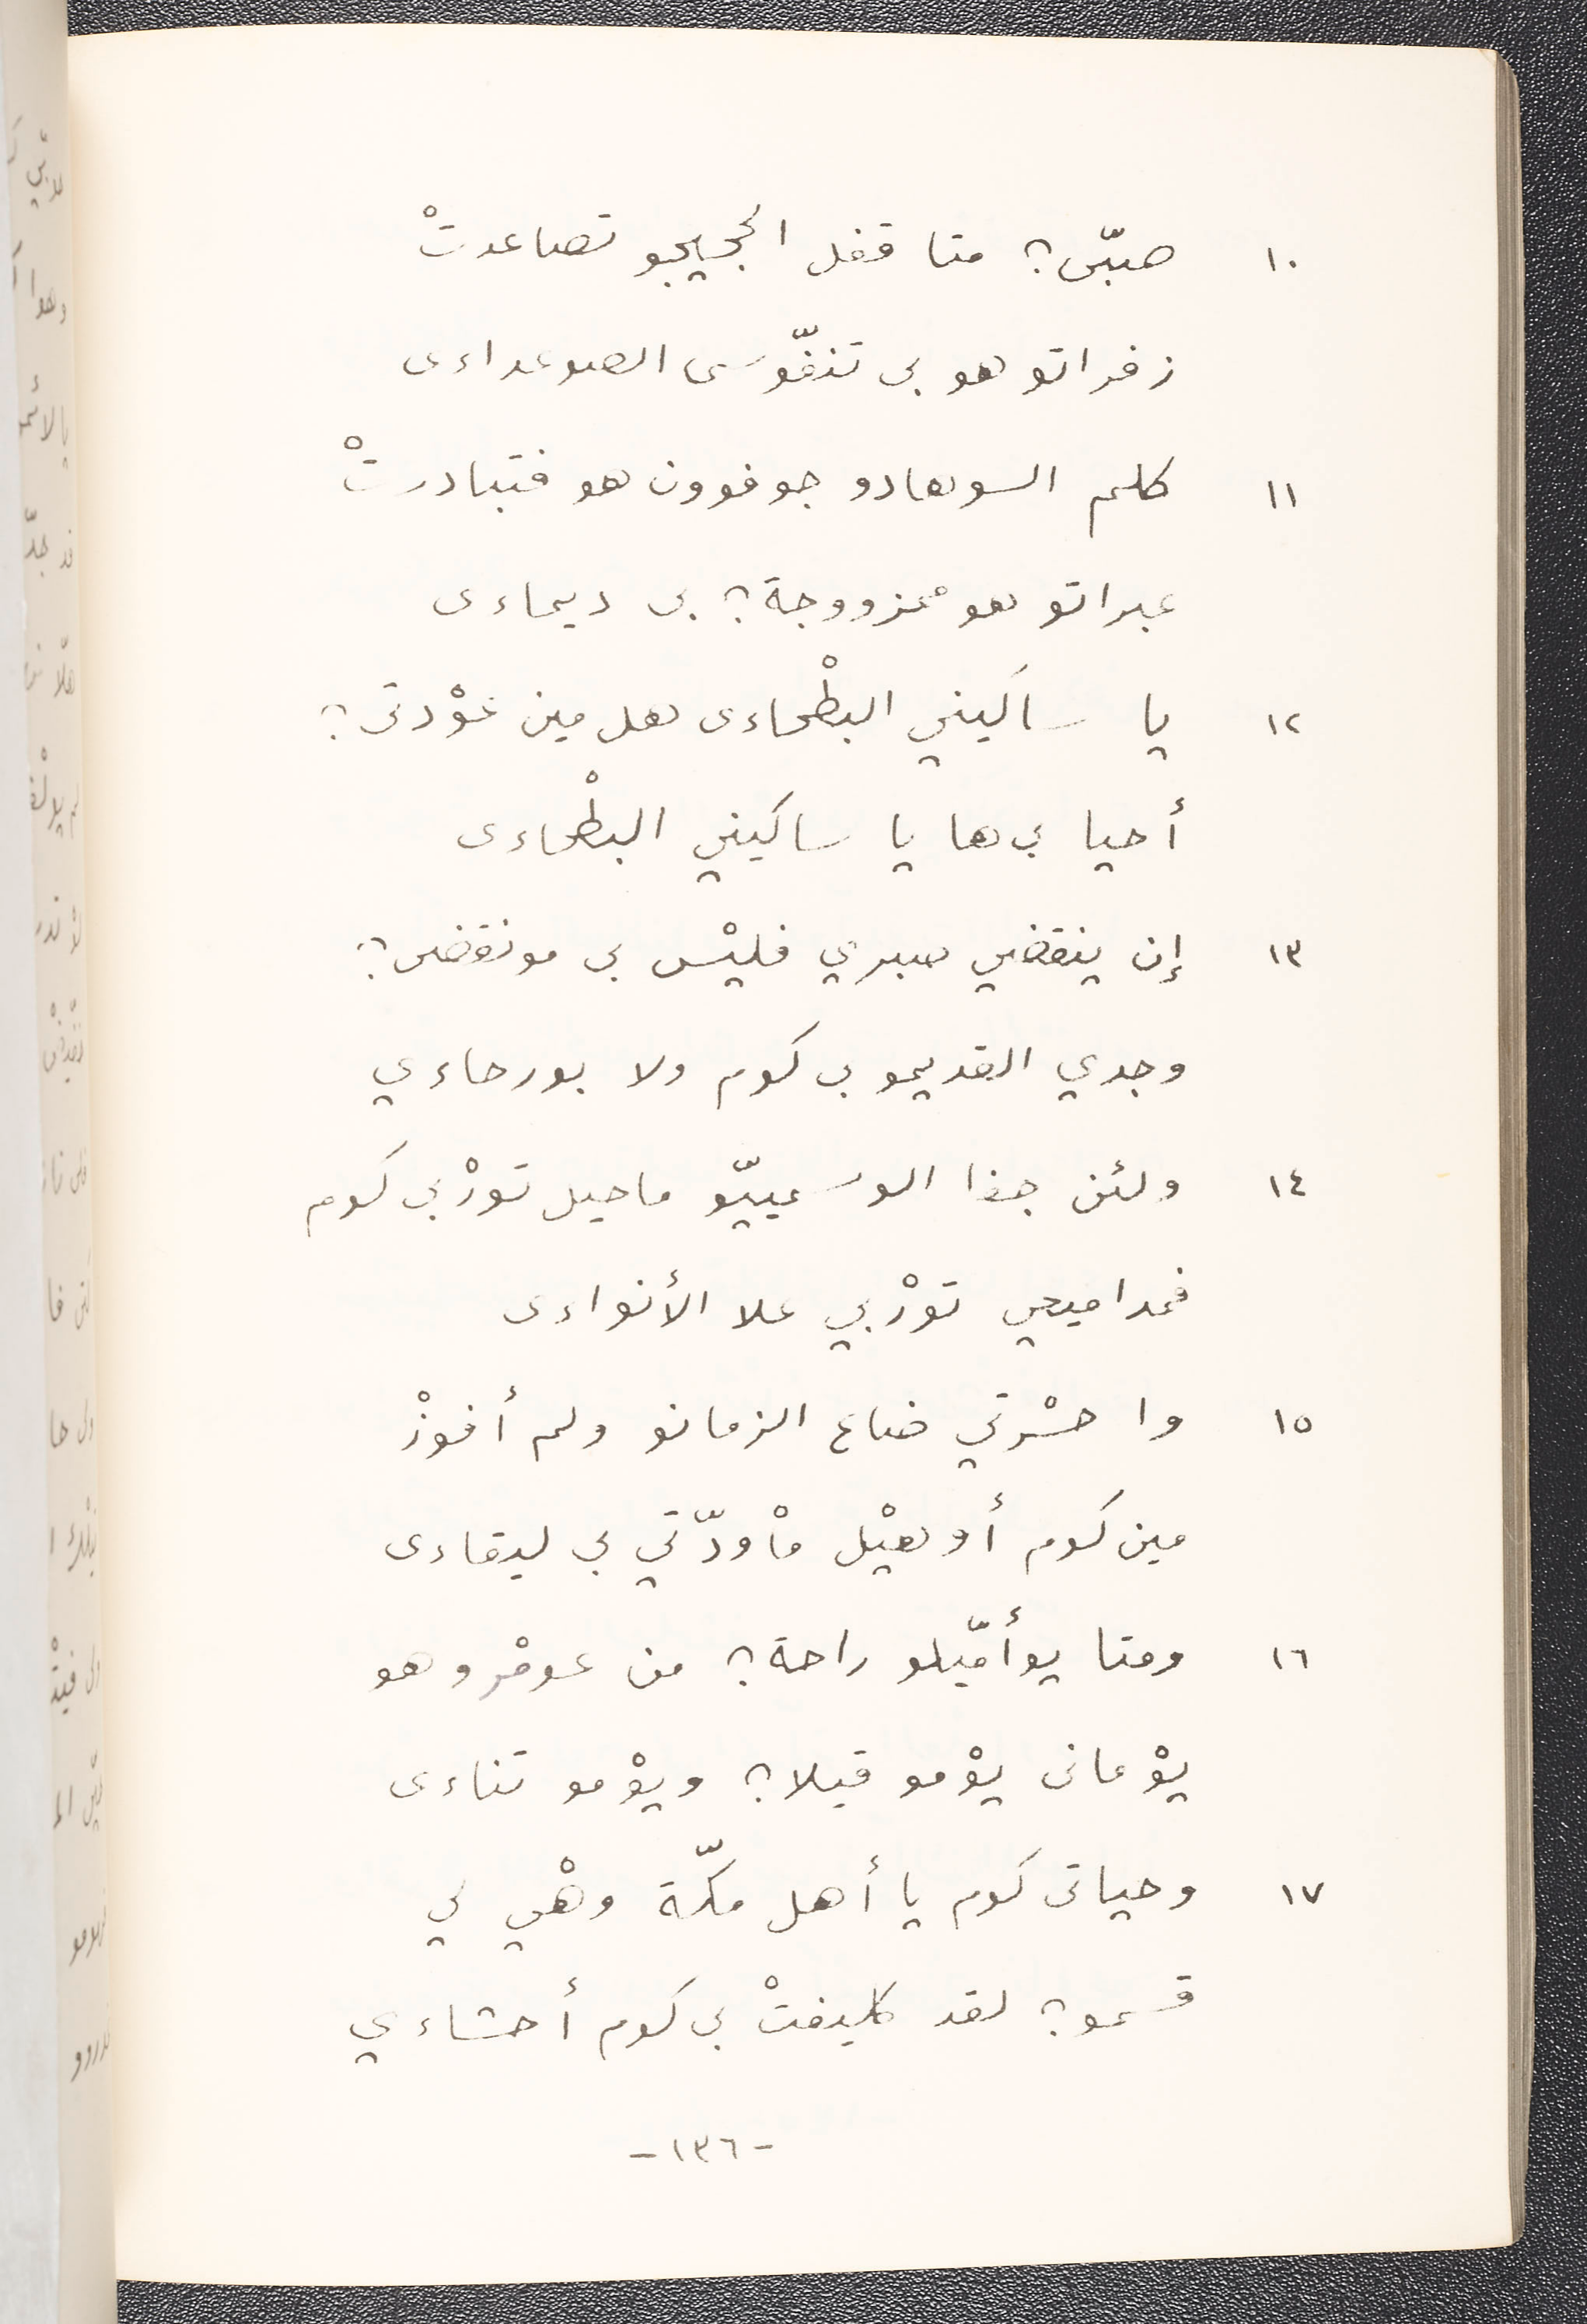 ١٠ صبّں؟ متا قفل الحجيجو تصاعدتْ
زفراتو هو بى تنفّوسى الصوعداءى
١١ كلم السوهادو جوفوون هو فتبادرتْ
عبراتو هو ممْزووجة؟ بى ديماءى
١٢ يا ساكيني البطْحاءى هل مين عوْدتى؟
أحيا بى ها يا ساكيني البطْحاءى
١٣ إن ينقضي صبري فليْس بى مونقضں؟
وجدي القديمو بى كوم ولا بورحاءي
١٤ ولئن جفا الوسمييّو ماحيل تورْبى كوم
فمداميعي تورْبي علا الأنواءى
١٥ وا حسْرتي ضاع الزمانو ولم أفوزْ
مين كوم أوهيْل مْاودّتي بى ليقاءى
١٦ ومتا يوأمّيلو راحة؟ من عومْرو هو
يوْمانى يوْمو قيلا؟ ويوْمو تناءى
١٧ وحياتى كوم يا أهل مكّة وهْي لي
قسمو؟ لقد كليفتْ بى كوم أحشاءي
-١٣٦-